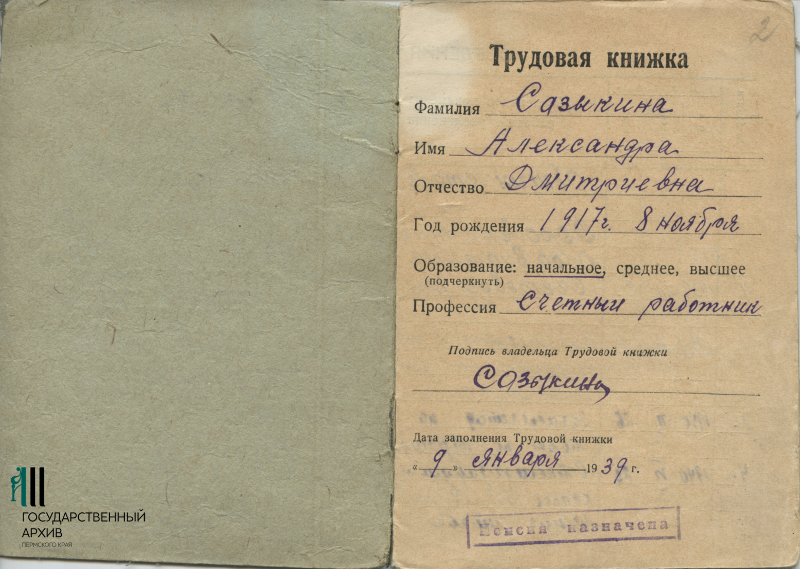 2
Трудовая книжка
Фамилия Сазыкина
Имя Александра
Отчество Дмитриевна
Год рождения 1917г. 8 ноября
Образование: начальное, среднее, высшее
(подчеркнуть)
Профессия Счетный работник
Подпись владельца Трудовой книжки
Сазыкина
Дата заполнения Трудовой книжки
„9" января 1939 г.
Пенсия назначена
ГОСУДАРСТВЕННЫЙ
АРХИВ
ПЕРМСКОГО КРАЯ